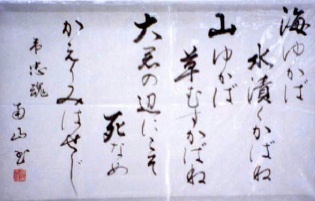 海ゆかば
水漬くかばね
山ゆかば
草むすかばね
大君の辺にこそ
死なめ
かえりみはせじ
忠魂
南山書